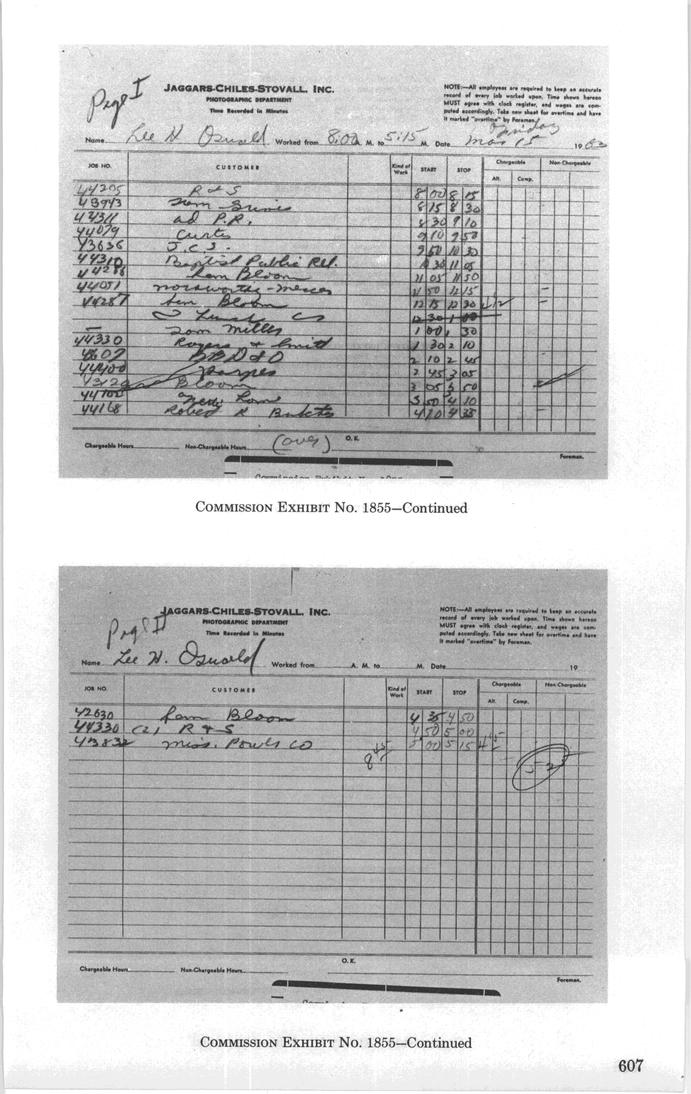 Page I
JAGGARS-CHILES-STOVALL, INC.
PHOTOGRAPHIC DEPARTMENT
Time Recorded in Minutes
NOTE:—All employees are required to keep an accurate
record of every job worked upon. Time shown hereon
MUST agree with clock register, and wages are com-
puted accordingly. Take new sheet for overtime and have
it marked "overtime" by Foreman.
Name Lee H Oswald Worked from 8:00 A. M. to 5:15 M. Date Mar 15 1963
JOB NO. CUSTOMER Kind of Work START STOP Chargeable Non-Chargeable
Alt. Comp.
44295 R & S 8 00 8 15
43943 Sam 8 15 8 30
ad P.R. 8 30 9 10
44079 Curtis 9 10 9 50
43636 J.C.S. 9 50 10 30
44310 Baptist Public Rel. 10 30 11 05
44286 Sam Bloom 11 05 11 50
44051 Norsworthy-Mercer 11 50 12 15
44287 Sam Bloom 12 15 12 30
Lunch 12 30 1 00
— Tom Mills 1 00 1 30
44330 Rogers & Smith 1 30 2 10
BBD&O 2 10 2 45
44400 2 45 3 05
Bloom 3 05 3 50
3 50 4 10
44168 Robert R Butcher 4 10 4 35
Chargeable Hours Non-Chargeable Hours (over) O. K.
Foreman.
COMMISSION EXHIBIT NO. 1855—Continued
Page II
JAGGARS-CHILES-STOVALL, INC.
PHOTOGRAPHIC DEPARTMENT
Time Recorded in Minutes
NOTE:—All employees are required to keep an accurate
record of every job worked upon. Time shown hereon
MUST agree with clock register, and wages are com-
puted accordingly. Take new sheet for overtime and have
it marked "overtime" by Foreman.
Name Lee H. Oswald Worked from A. M. to M. Date 19
JOB NO. CUSTOMER Kind of Work START STOP Chargeable Non-Chargeable
Alt. Comp.
42630 Sam Bloom 4 35 4 50
44330 (2) R & S 4 50 5 00
43832 Miss. Power Co 5 00 5 15
8 45
Chargeable Hours Non-Chargeable Hours O. K.
Foreman.
COMMISSION EXHIBIT NO. 1855—Continued
607